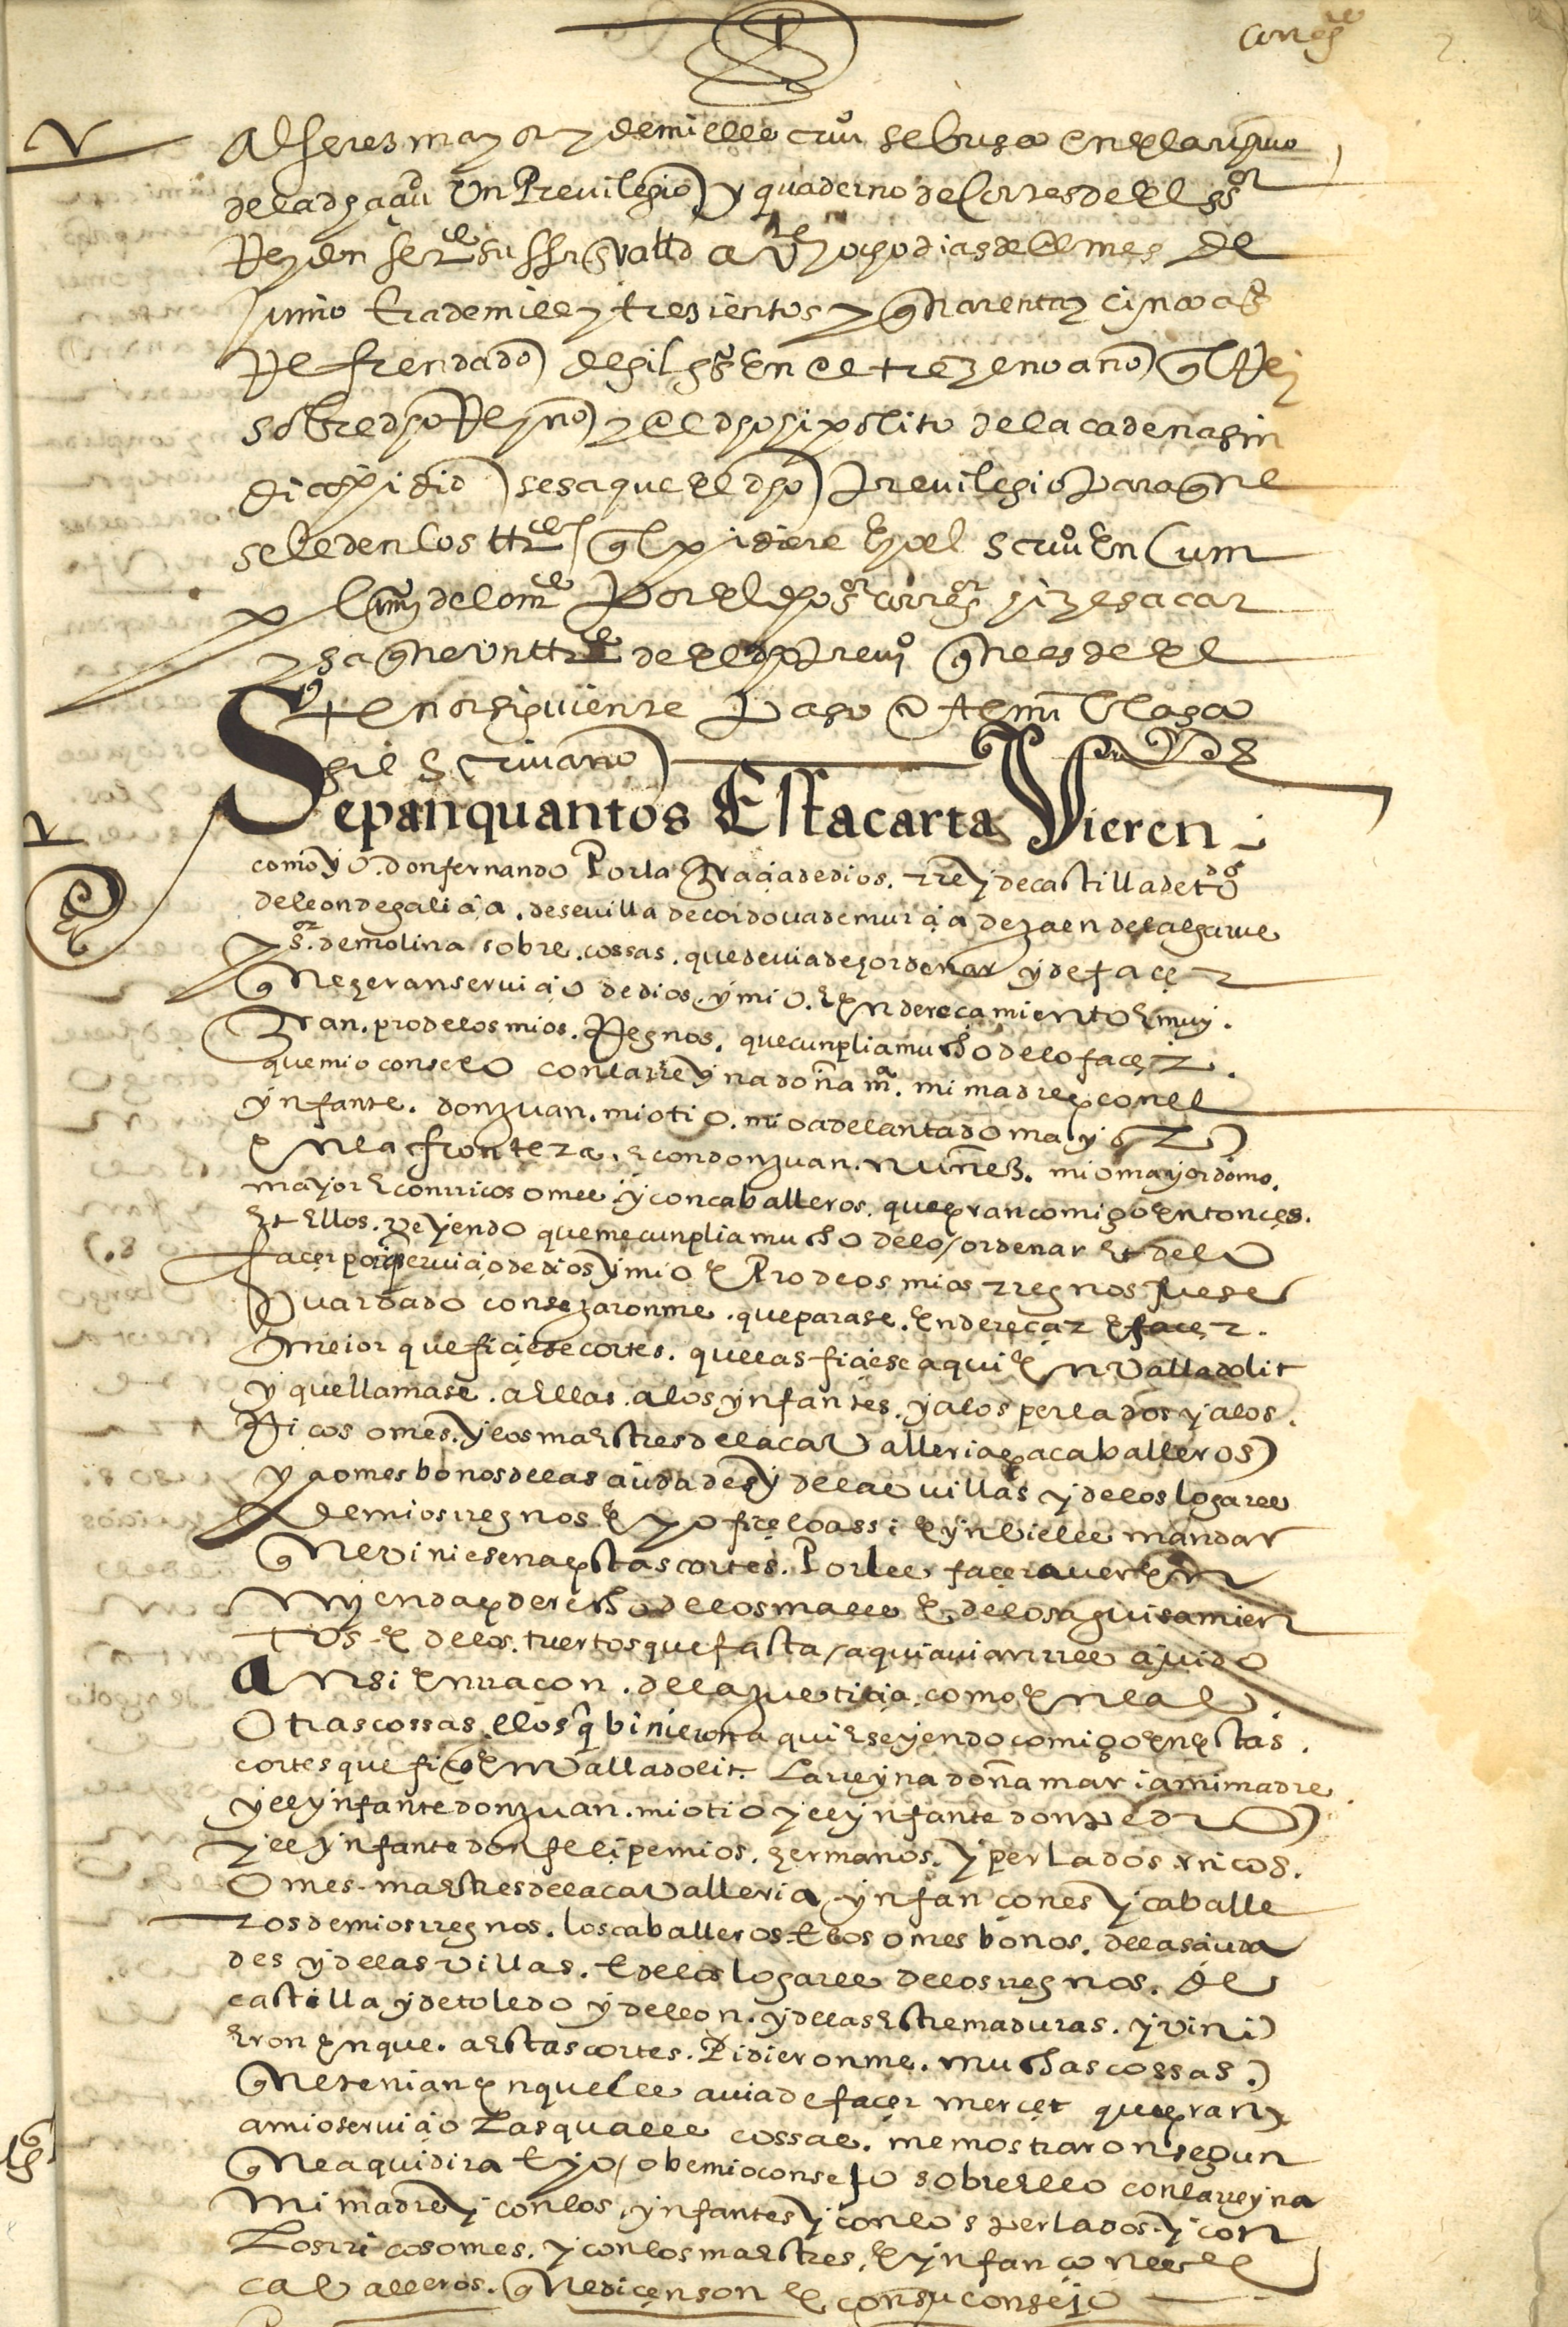 alferes mayor y de mi el scriuº se busco en el archiuo
de la dha çiu Un Preuilegio y quaderno de Cortes de el ssor
Rey don fer su ffa Valld a e ocho dias de el mes de
Junio Era de mill y tresientos y quarenta y cinco as
Refrendado de gil gs En el trezeno año q el Rey
sobredho Reyno y el dho hipolito de la cadena sin
dico pidio se saque el dho Preuilegio para que
se le den los ttdos q pidiere E yo el scriuº En Cum
plimº de lo mdo Por el dho sor corregor hize sacar
y saque Un ttdo de el dho Preuiº que es de el
tenor siguiente Paso Ante mi
gil scriuano
Sepan quantos Esta carta Vieren
como yo. don fernando Por la Graçia de dios. rrey de castilla de tº
de leon de galiçia. de seuilla de cordoua de murçia de jaen del algarue
y sor. de molina sobre. cossas. que deuia de hordenar y de façer
que heran seruiçio de dios. y mio. E endereçamiento E muy.
Gran. pro de los mios. Regnos. que cunplia mucho de lo façer.
que mio consejo con la rreyna doña mª. mi madre e con el
ynfante. don juan. mio tio. mio adelantado mayor
en la frontera. E con don juan. nuñez. mio mayordomo.
mayor E con rricos omes y con caballeros. que eran comigo entonces.
Et Ellos. veyendo que me cunplia mucho de lo ordenar Et de lo
façer porque seruiçio de dios y mio e Pro de os mios rregnos fuese
Guardado consejaronme. que para se. endereçar e façer.
meior que fiçiese cortes. que las fiçiese aqui en Valladolit
y que llamase. a Ellas. a los ynfantes. y a los perlados y a los.
Ricos omes. y los maestres de la caualleria e a caballeros
y a omes bonos de las çiudades y de las villas y de los logares
de mios rregnos e yo fiçelo assi e ynbieles mandar
que viniesen a estas cortes. Por les façer auer en
myenda e derecho de los males e de los aguisamien
tos e de los. tuertos que fasta aqui auian rres çiuido
ansi en raçon. de la justiçia. como en las.
Otras cossas ellos q binieron a qui E seyendo comigo en estas.
cortes que fiço en Valladolit. La reyna doña maria mi madre.
y el ynfante don juan. mio tio y el ynfante don pedro
y el ynfante don felipe mios. hermanos. y perlados rricos.
Omes. maestres de la caualleria ynfançones y caballe
ros de mios rregnos. los caballeros. E los omes bonos. de las çiuda
des y de las villas. E de los logares de los regnos. de
castilla y de toledo y de leon. y de las Estremaduras. y vini
Eron en que. a Estas cortes. Pidieronme. muchas cossas.
que tenian en que les auia de façer merçet que eran
a mio seruiçio Las quales cossas. me mostraron segun
que aqui dira E yo obe mio consejo sobre Ello con la reyna
Mi madre y con los ynfantes y con los perlados. y con
Los rricos omes. y con los maestres. e ynfançones e
caualleros. que diçen son e con su consejo